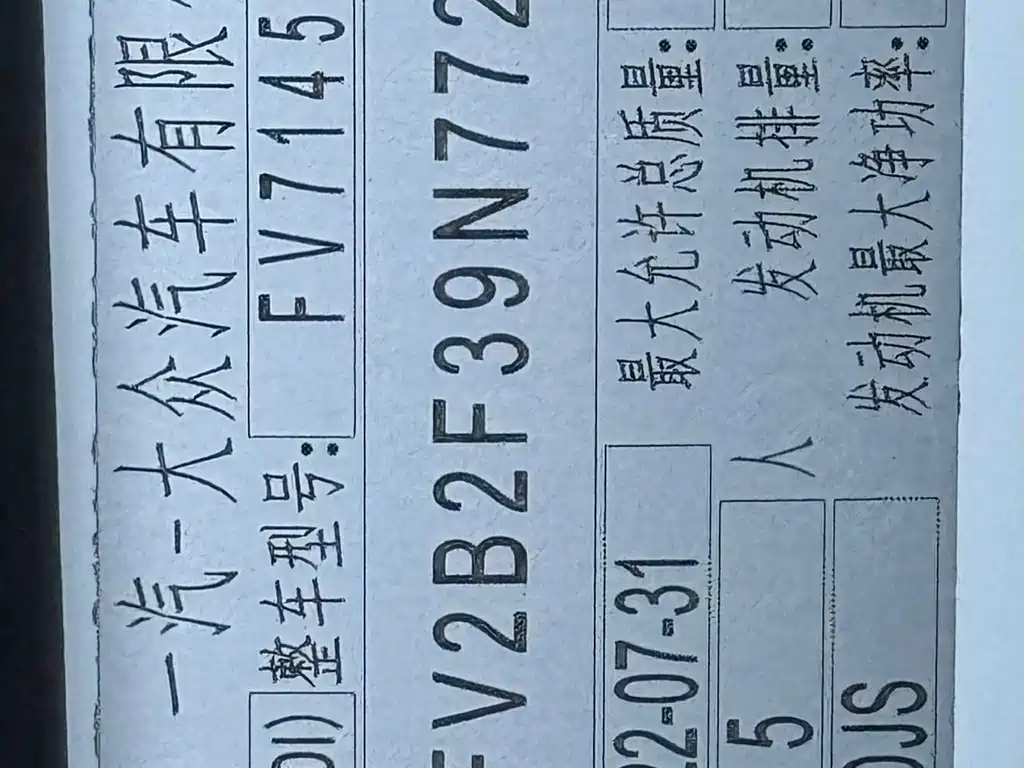 一汽-大众汽车有限
DI) 整车型号: FV7145
FV2B2F39N772
2-07-31 最大允许总质量:
5 人 发动机排量:
DJS 发动机最大净功率: